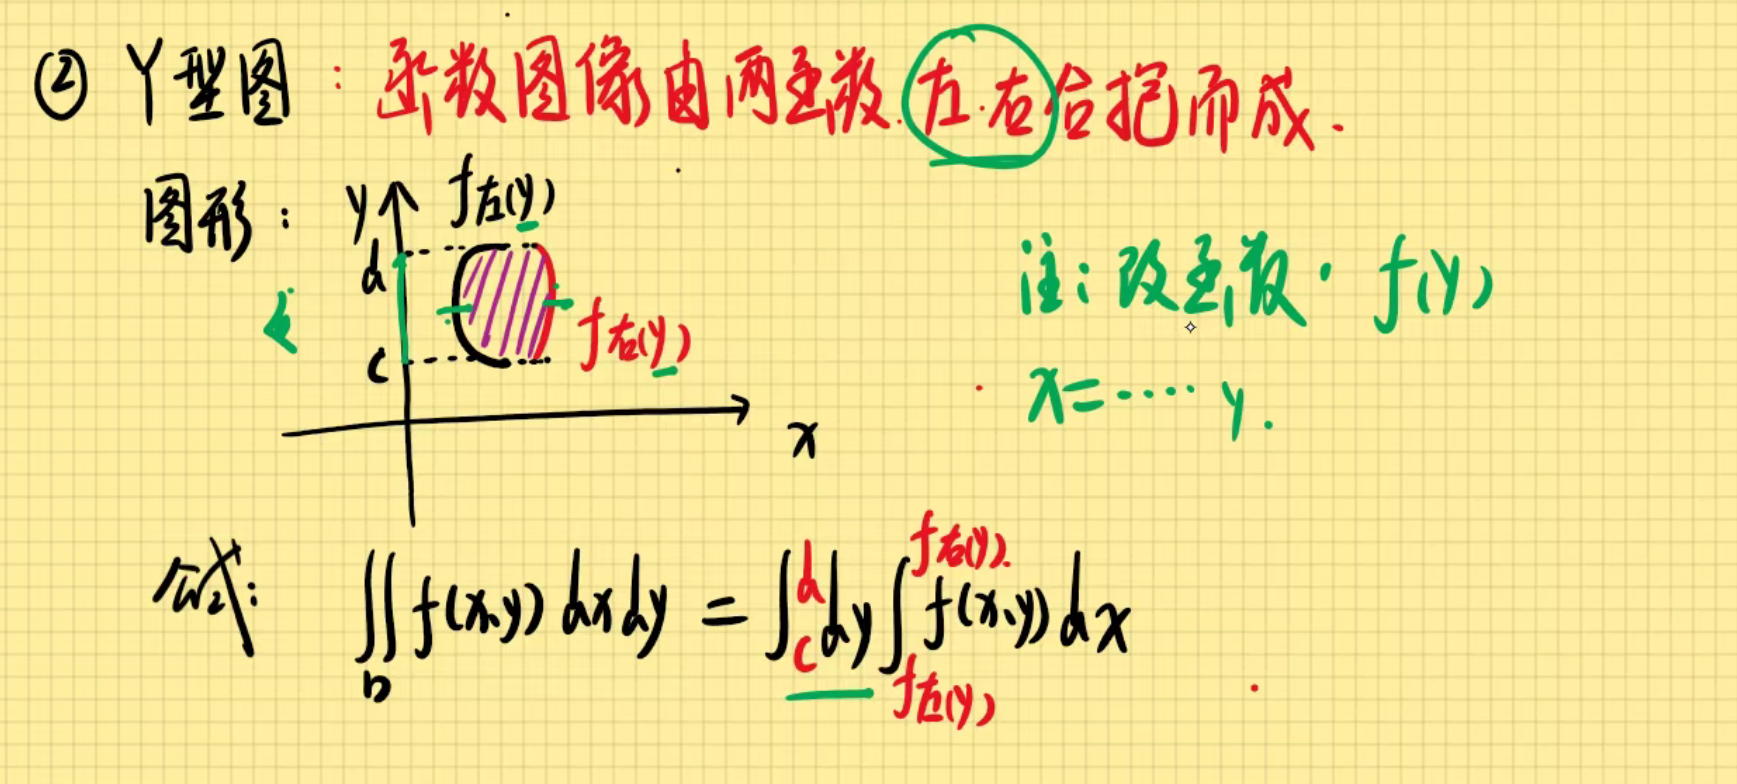 ② Y型图：函数图像由两函数左、右合抱而成.
图形：
y
f左(y)
d
c
f右(y)
x
注：改函数. f(y)
x=·····y.
公式：∬D f(x,y)dxdy = ∫_c^d dy ∫_{f左(y)}^{f右(y)} f(x,y)dx